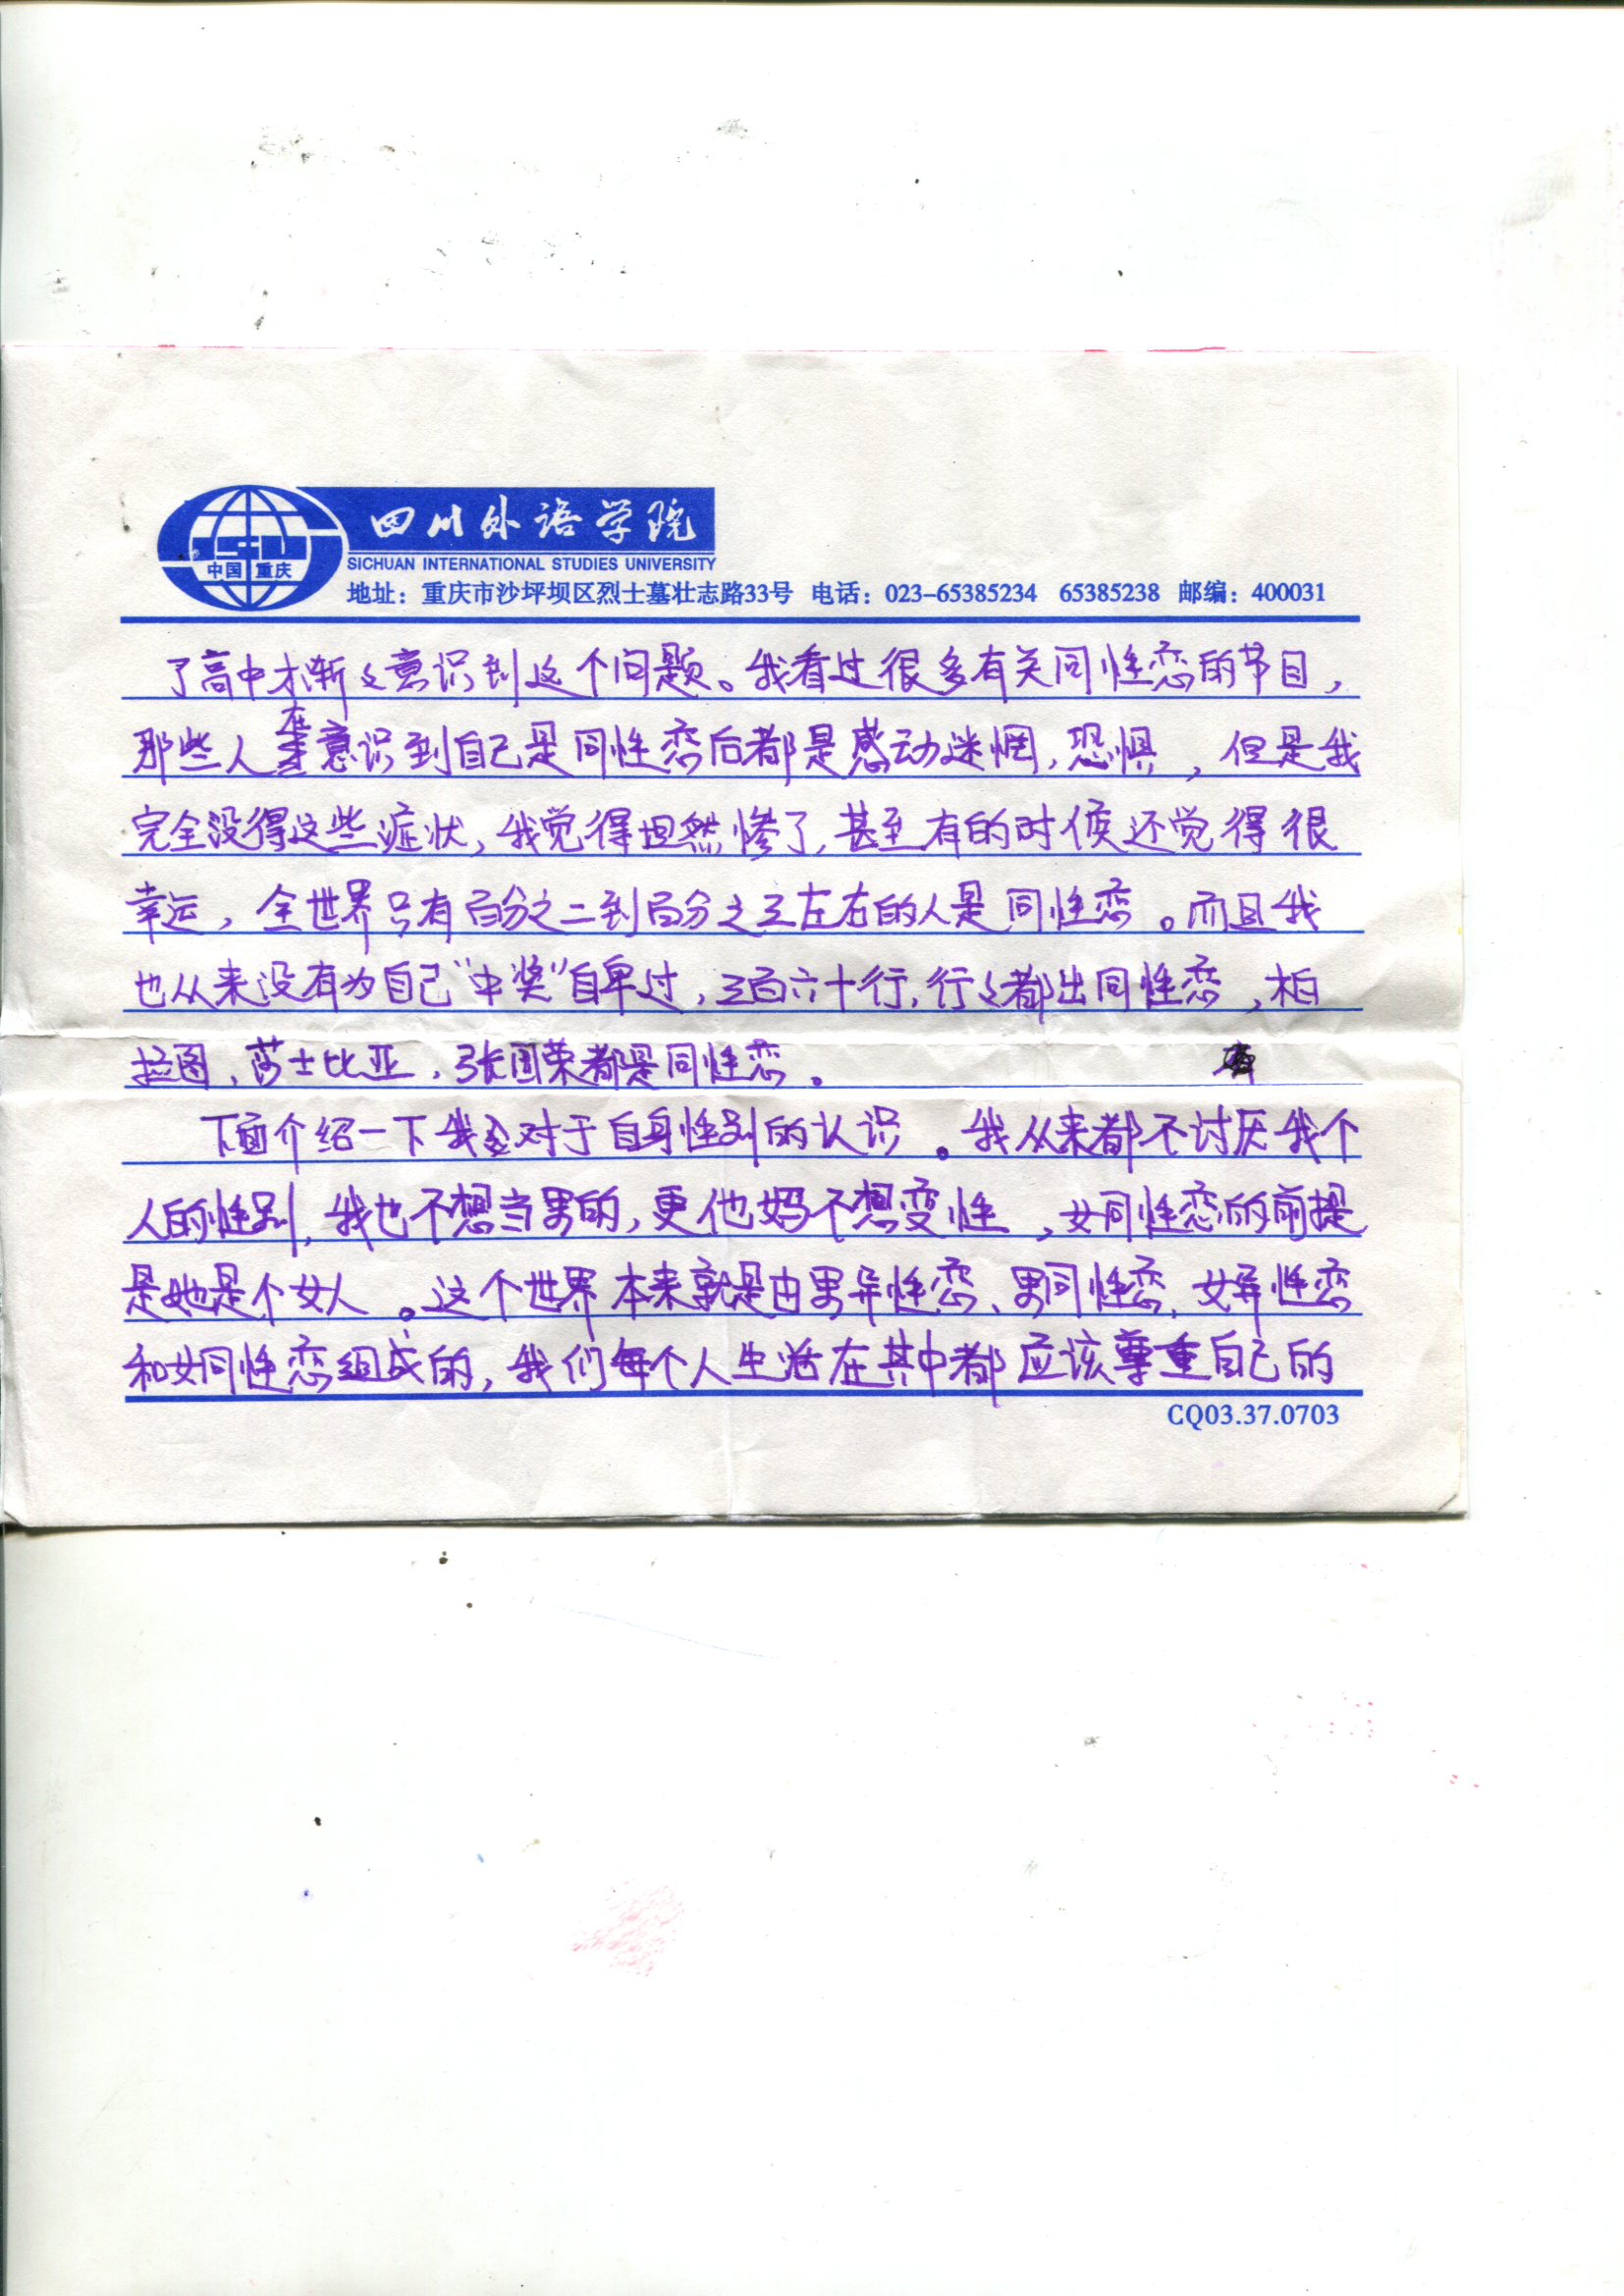 四川外语学院
SICHUAN INTERNATIONAL STUDIES UNIVERSITY
中国 重庆
地址：重庆市沙坪坝区烈士墓壮志路33号 电话：023-65385234 65385238 邮编：400031
了高中才渐々意识到这个问题。我看过很多有关同性恋的节目，
那些人在意识到自己是同性恋后都是感动迷惘，恐惧，但是我
完全没得这些症状，我觉得坦然惨了，甚至有的时候还觉得很
幸运，全世界只有百分之二到百分之三左右的人是同性恋。而且我
也从来没有为自己“中奖”自卑过，三百六十行，行々都出同性恋，柏
拉图，莎士比亚，张国荣都是同性恋。
下面介绍一下我对于自身性别的认识。我从来都不讨厌我个
人的性别，我也不想当男的，更他妈不想变性，女同性恋的前提
是她是个女人。这个世界本来就是由男异性恋、男同性恋，女异性恋
和女同性恋组成的，我们每个人生活在其中都应该尊重自己的
CQ03.37.0703